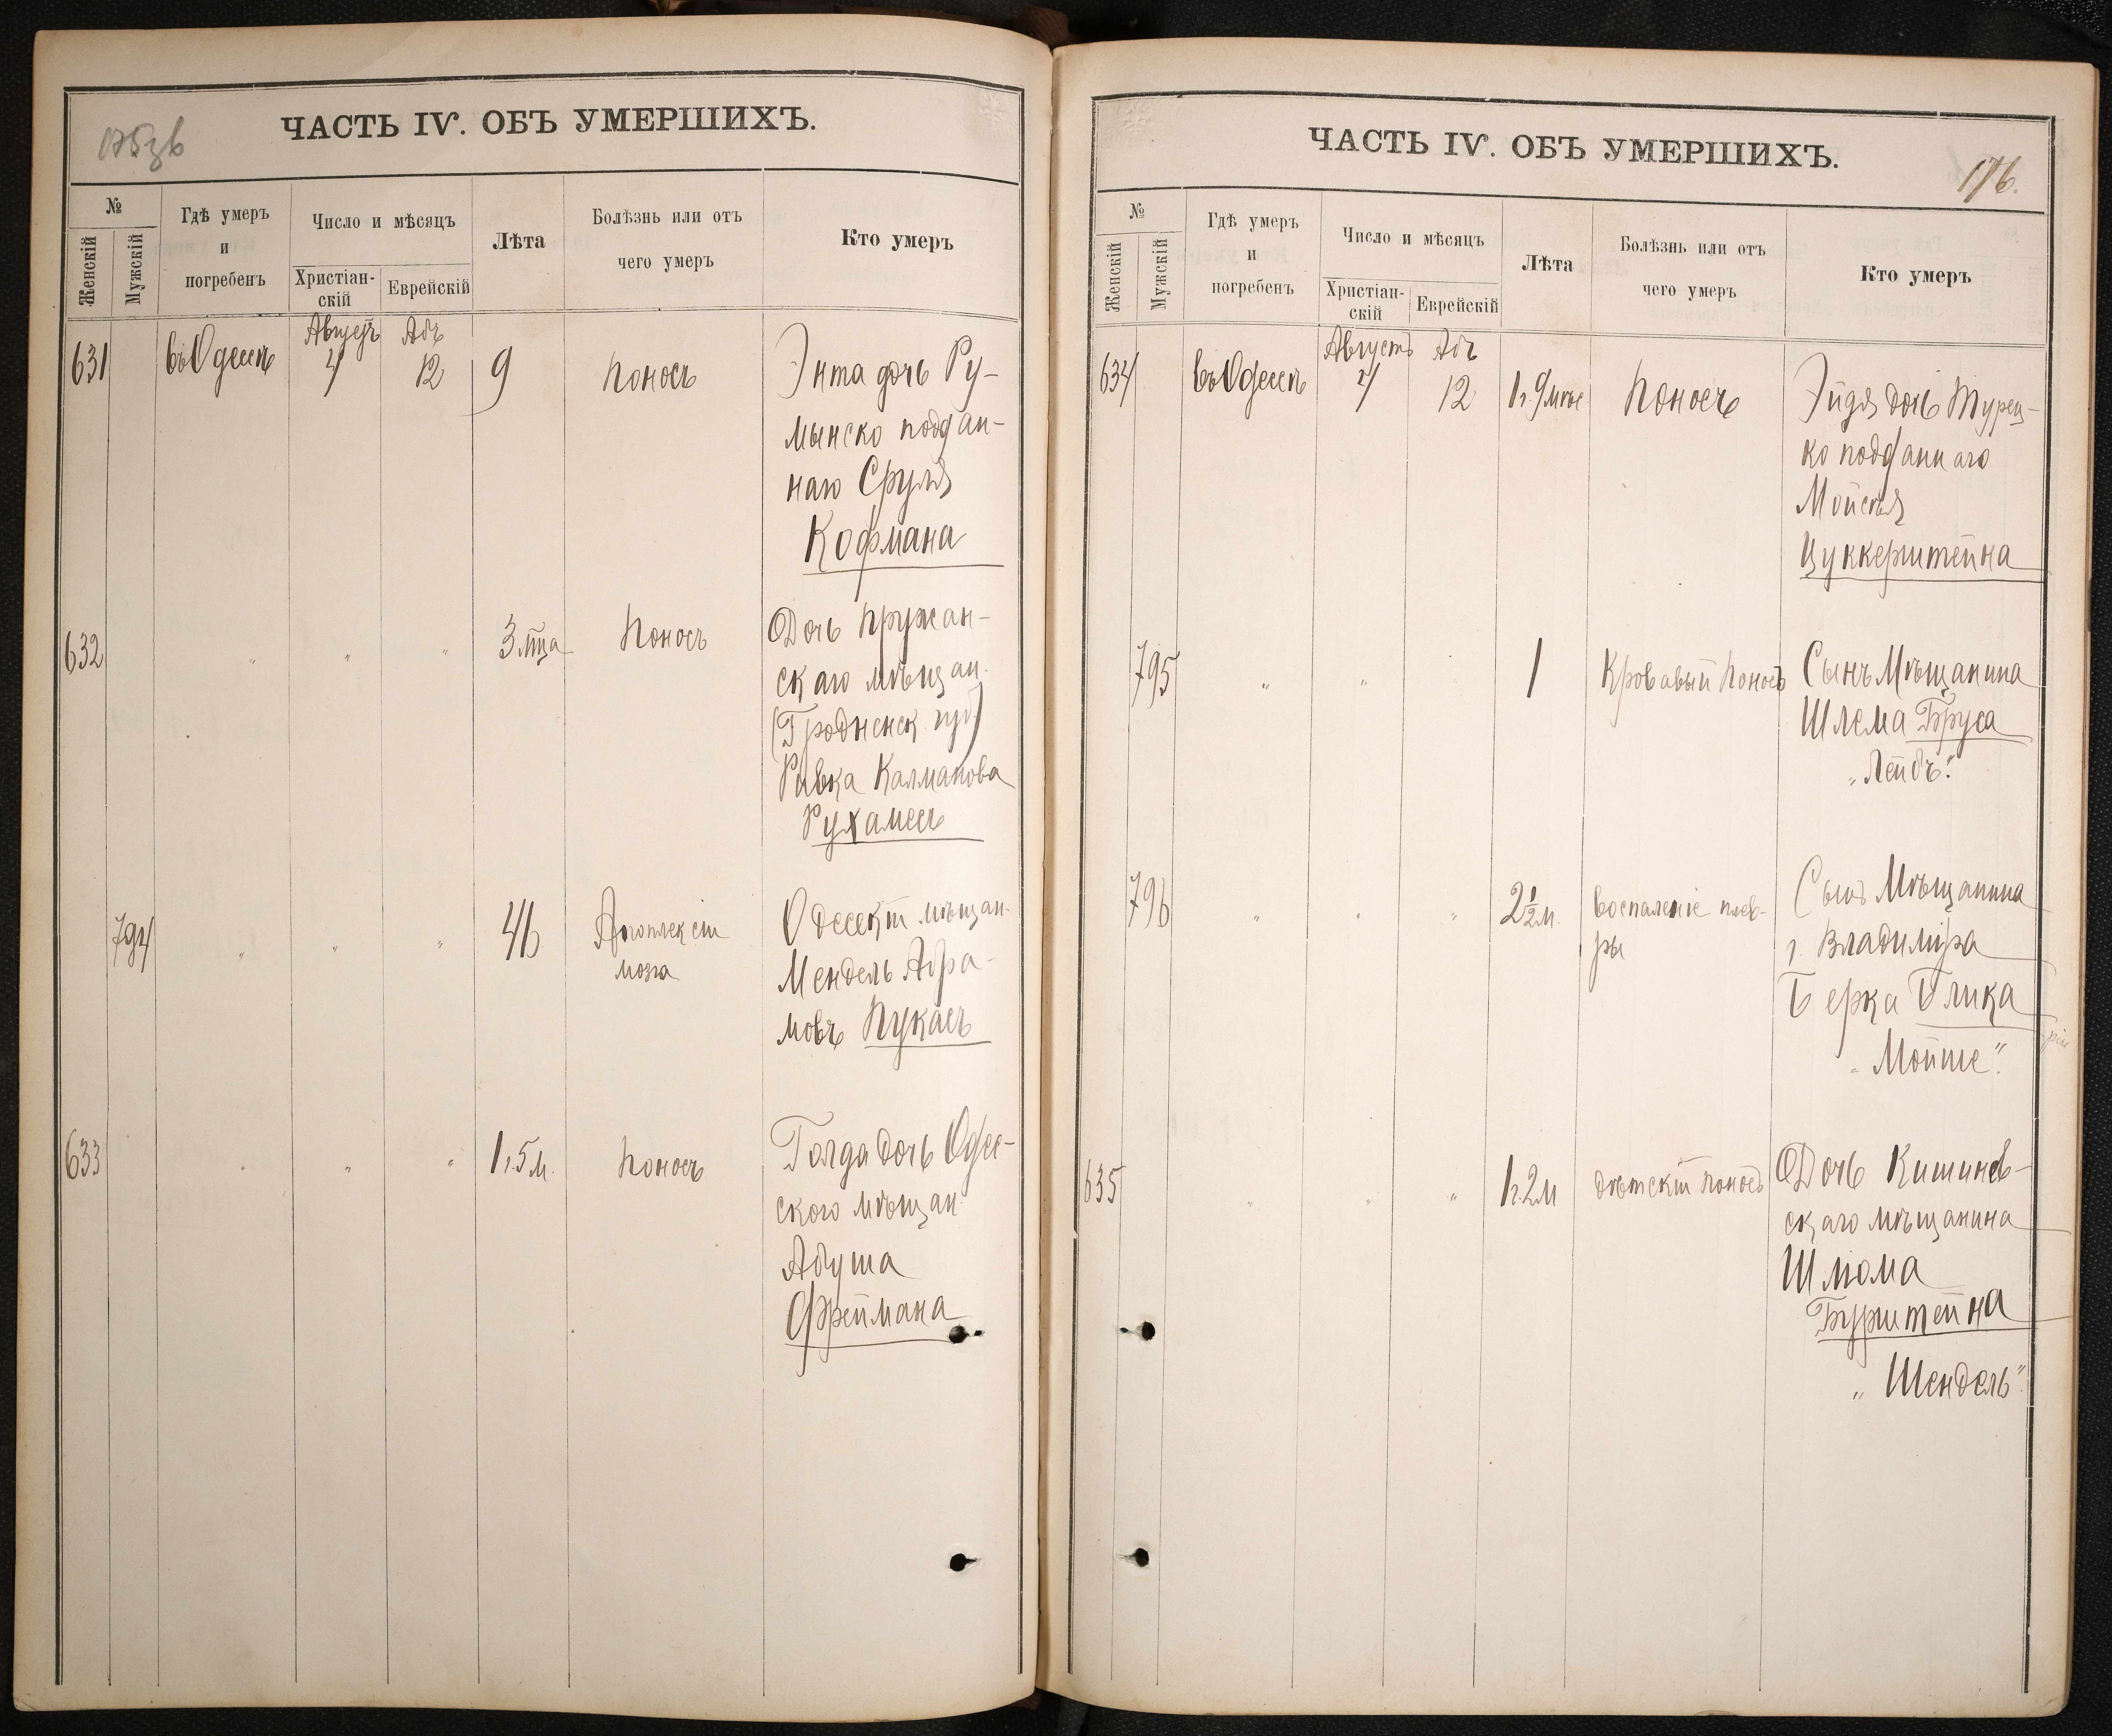 ЧАСТЬ IV. ОБЪ УМЕРШИХЪ.
№
Женскій
Мужскій
Гдѣ умеръ
и
погребенъ
Число и мѣсяцъ
Христіан-
скій
Еврейскій
Лѣта
Болѣзнь или отъ
чего умеръ
Кто умеръ
631 въ Одессѣ Августъ 4 Абъ 12 9 Поносъ Энта дочь Ру-
мынско поддан-
наго Сруля
Кофмана
632 " " " 3 м-ца Поносъ Дочь Пружан-
скаго мѣщан.
(Гродненск. губ.)
Ривка Калманова
Рухамесъ
794 " " " 46 Апоплексія Одесскій мѣщан.
мозга Мендель Абра-
мовъ Пукасъ
633 " " " 1 г. 5 м. Поносъ Голда дочь Одес-
ского мѣщан.
Абуша
Фреймана
ЧАСТЬ IV. ОБЪ УМЕРШИХЪ.
176.
№
Женскій
Мужскій
Гдѣ умеръ
и
погребенъ
Число и мѣсяцъ
Христіан-
скій
Еврейскій
Лѣта
Болѣзнь или отъ
чего умеръ
Кто умеръ
634 въ Одессѣ Августъ 4 Абъ 12 1 г. 9 мѣс Поносъ Эйдя дочь Турец-
ко подданнаго
Мойсѣя
Цуккерштейна
795 " " 1 Кровавый Поносъ Сынъ Мѣщанина
Шлема Бруса
"Лейбъ".
796 " " " 2½ м. Воспаленіе плев- Сынъ Мѣщанина
ры г. Владиміра
Берка Глика
"Мойше".
635 " " " 1 г. 2 м Дѣтскій Поносъ Дочь Кишинев-
скаго мѣщанина
Шлома
Бурштейна
"Шендель".